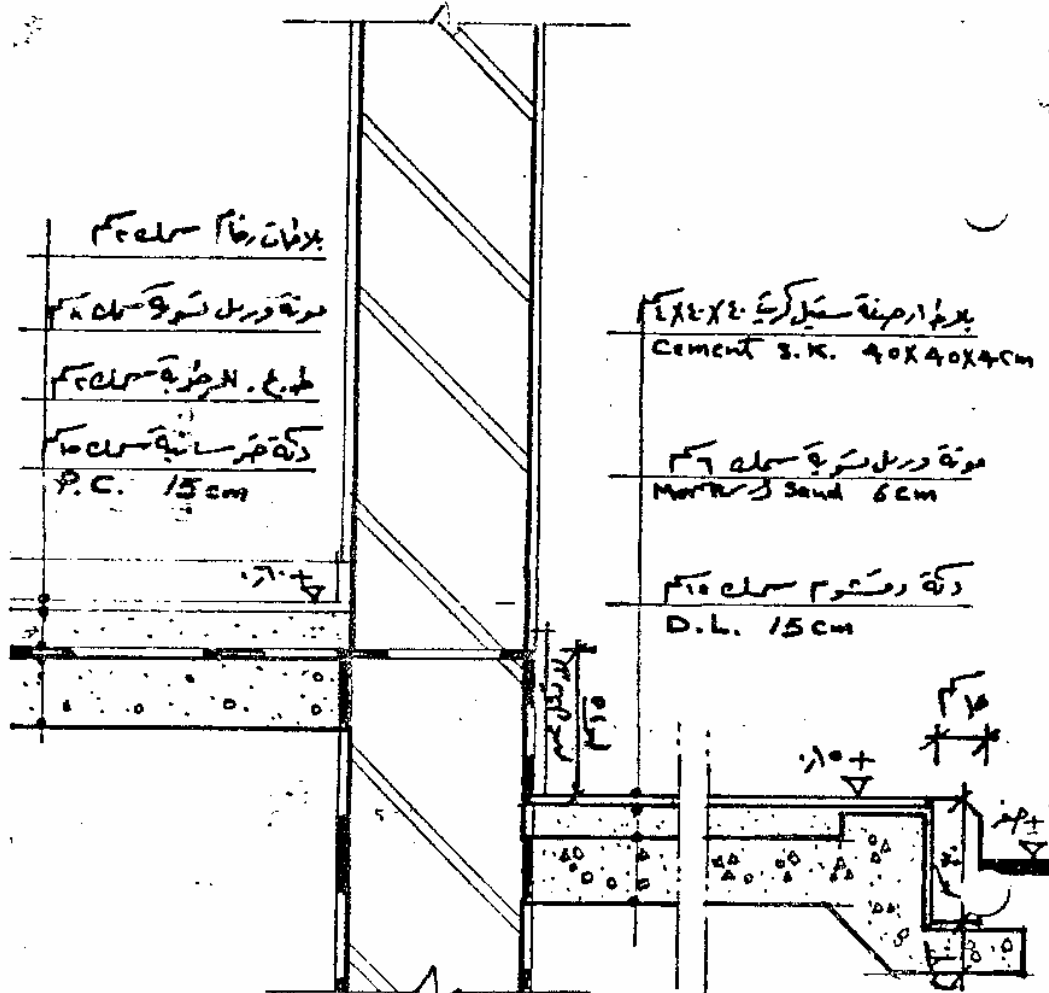 بلاطات رخام سمك ٢سم
مونة ورمل تسوية سمك ٨سم
ط.ع. للرطوبة سمك ٢سم
دكة خرسانية سمك ١٥سم
P.C. 15 cm
٠٫٦٠+
بلاط ارصفة ستيل كريت ٤٠X٤٠X٤سم
Cement S.K. 40X40X4cm
مونة ورمل تسوية سمك ٦سم
Mortar & Sand 6 cm
دكة دقشوم سمك ١٥سم
D.L. 15 cm
لا تقل عن
١٥سم
١٥ سم
٠٫١٥+
صفر+